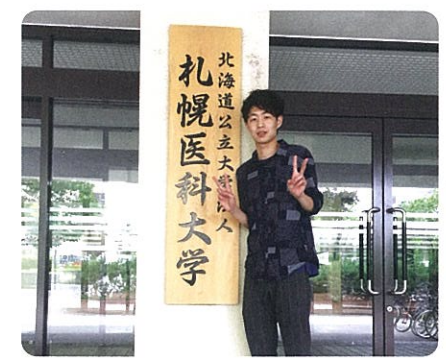 北海道公立大学法人
札幌医科大学